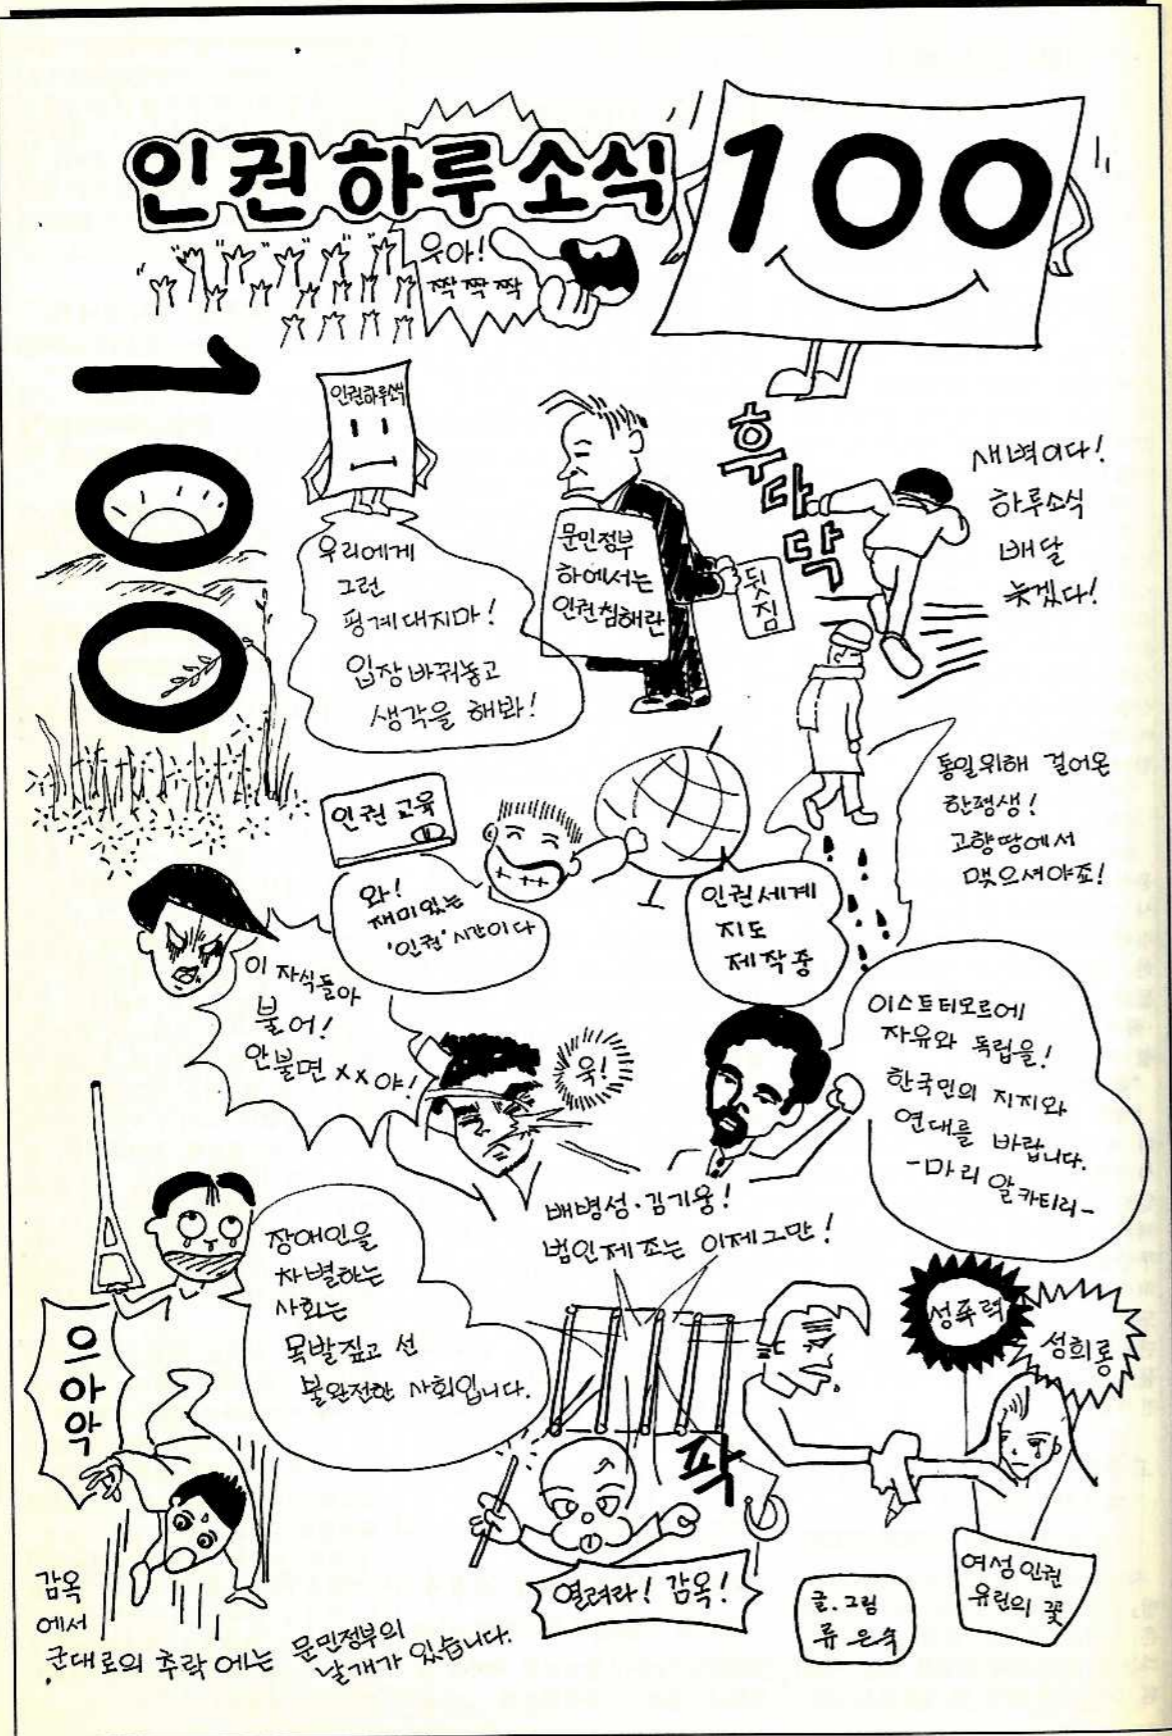 인권하루소식
100
우아!
짝짝짝
100
인권하루소식
우리에게
그런
핑계대지마!
입장바꿔놓고
생각을 해봐!
문민정부
하에서는
인권침해란
뒷
짐
후다닥
새벽이다!
하루소식
배달
늦겠다!
통일위해 걸어온
한평생!
고향땅에서
맺으셔야죠!
인권 교육
와!
재미있는
'인권' 시간이다
인권세계
지도
제작중
이 자식들아
불어!
안불면 xx야!
욱!
이스트티모르에
자유와 독립을!
한국민의 지지와
연대를 바랍니다.
-마리 알카티리-
배병성·김기웅!
범인제조는 이제그만!
장애인을
차별하는
사회는
목발짚고 선
불완전한 사회입니다.
으아악
성폭력
성희롱
팍
열려라! 감옥!
여성인권
유린의 꽃
글.그림
류은숙
감옥
에서
군대로의 추락에는 문민정부의
날개가 있습니다.